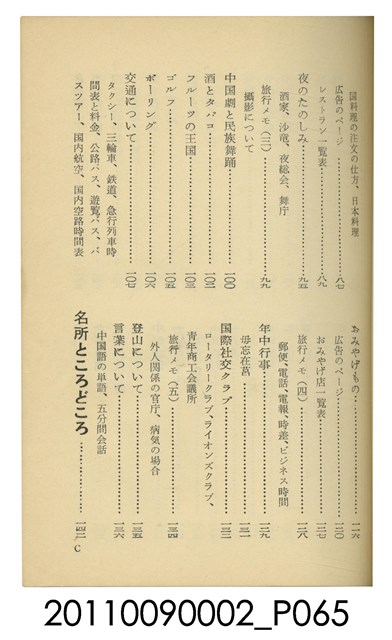 国料理の注文の仕方、日本料理
広告のページ……八七
レストラン一覧表……八九
夜のたのしみ……九五
酒家、沙竜、夜総会、舞庁
旅行メモ（三）……九九
撮影について
中国劇と民族舞踊……一〇〇
酒とタバコ……一〇二
フルーツの王国……一〇三
ゴルフ……一〇五
ボーリング……一〇六
交通について……一〇七
タクシー、三輪車、鉄道、急行列車時
間表と料金、公路バス、遊覧バス、バ
スツアー、国内航空、国内空路時間表
おみやげもの……一一六
広告のページ……一二〇
おみやげ店一覧表……一二七
旅行メモ（四）……一二八
郵便、電話、電報、時差、ビジネス時間
年中行事……一二九
毋忘在莒……一三一
国際社交クラブ……一三三
ロータリークラブ、ライオンズクラブ、
青年商工会議所
旅行メモ（五）……一三四
外人関係の官庁、病気の場合
登山について……一三五
言葉について……一三六
中国語の単語、五分間会話
名所ところどころ……一四二
C
20110090002_P065